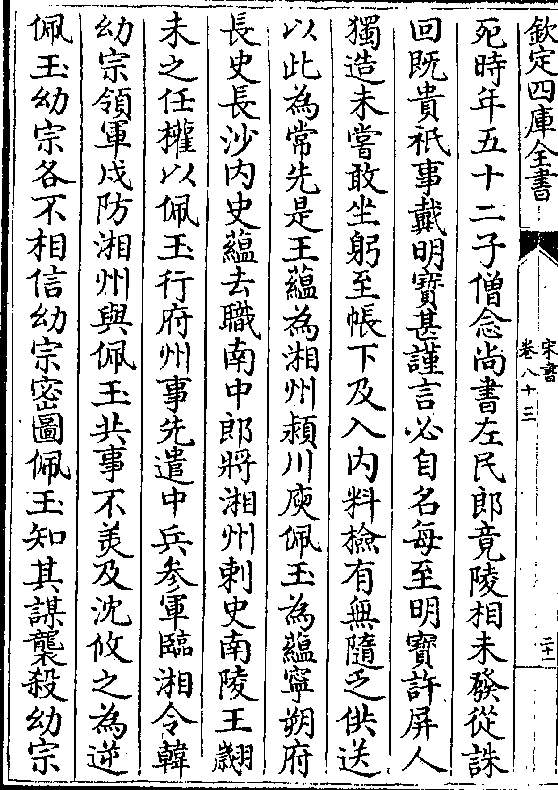 欽定四庫全書
宋書
卷八十三
二十二
死時年五十二子僧念尚書左民郎竟陵相未發從誅
回既貴祇事戴明寶甚謹言必自名每至明寶許屏人
獨造未嘗敢坐躬至帳下及入內料檢有無隨乏供送
以此為常先是王蘊為湘州潁川庾佩玉為蘊寧朔府
長史長沙內史蘊去職南中郎將湘州刺史南陵王翽
未之任權以佩玉行府州事先遣中兵参軍臨湘令韓
幼宗領軍戍防湘州與佩玉共事不美及沈攸之為逆
佩玉幼宗各不相信幼宗密圖佩玉知其謀襲殺幼宗